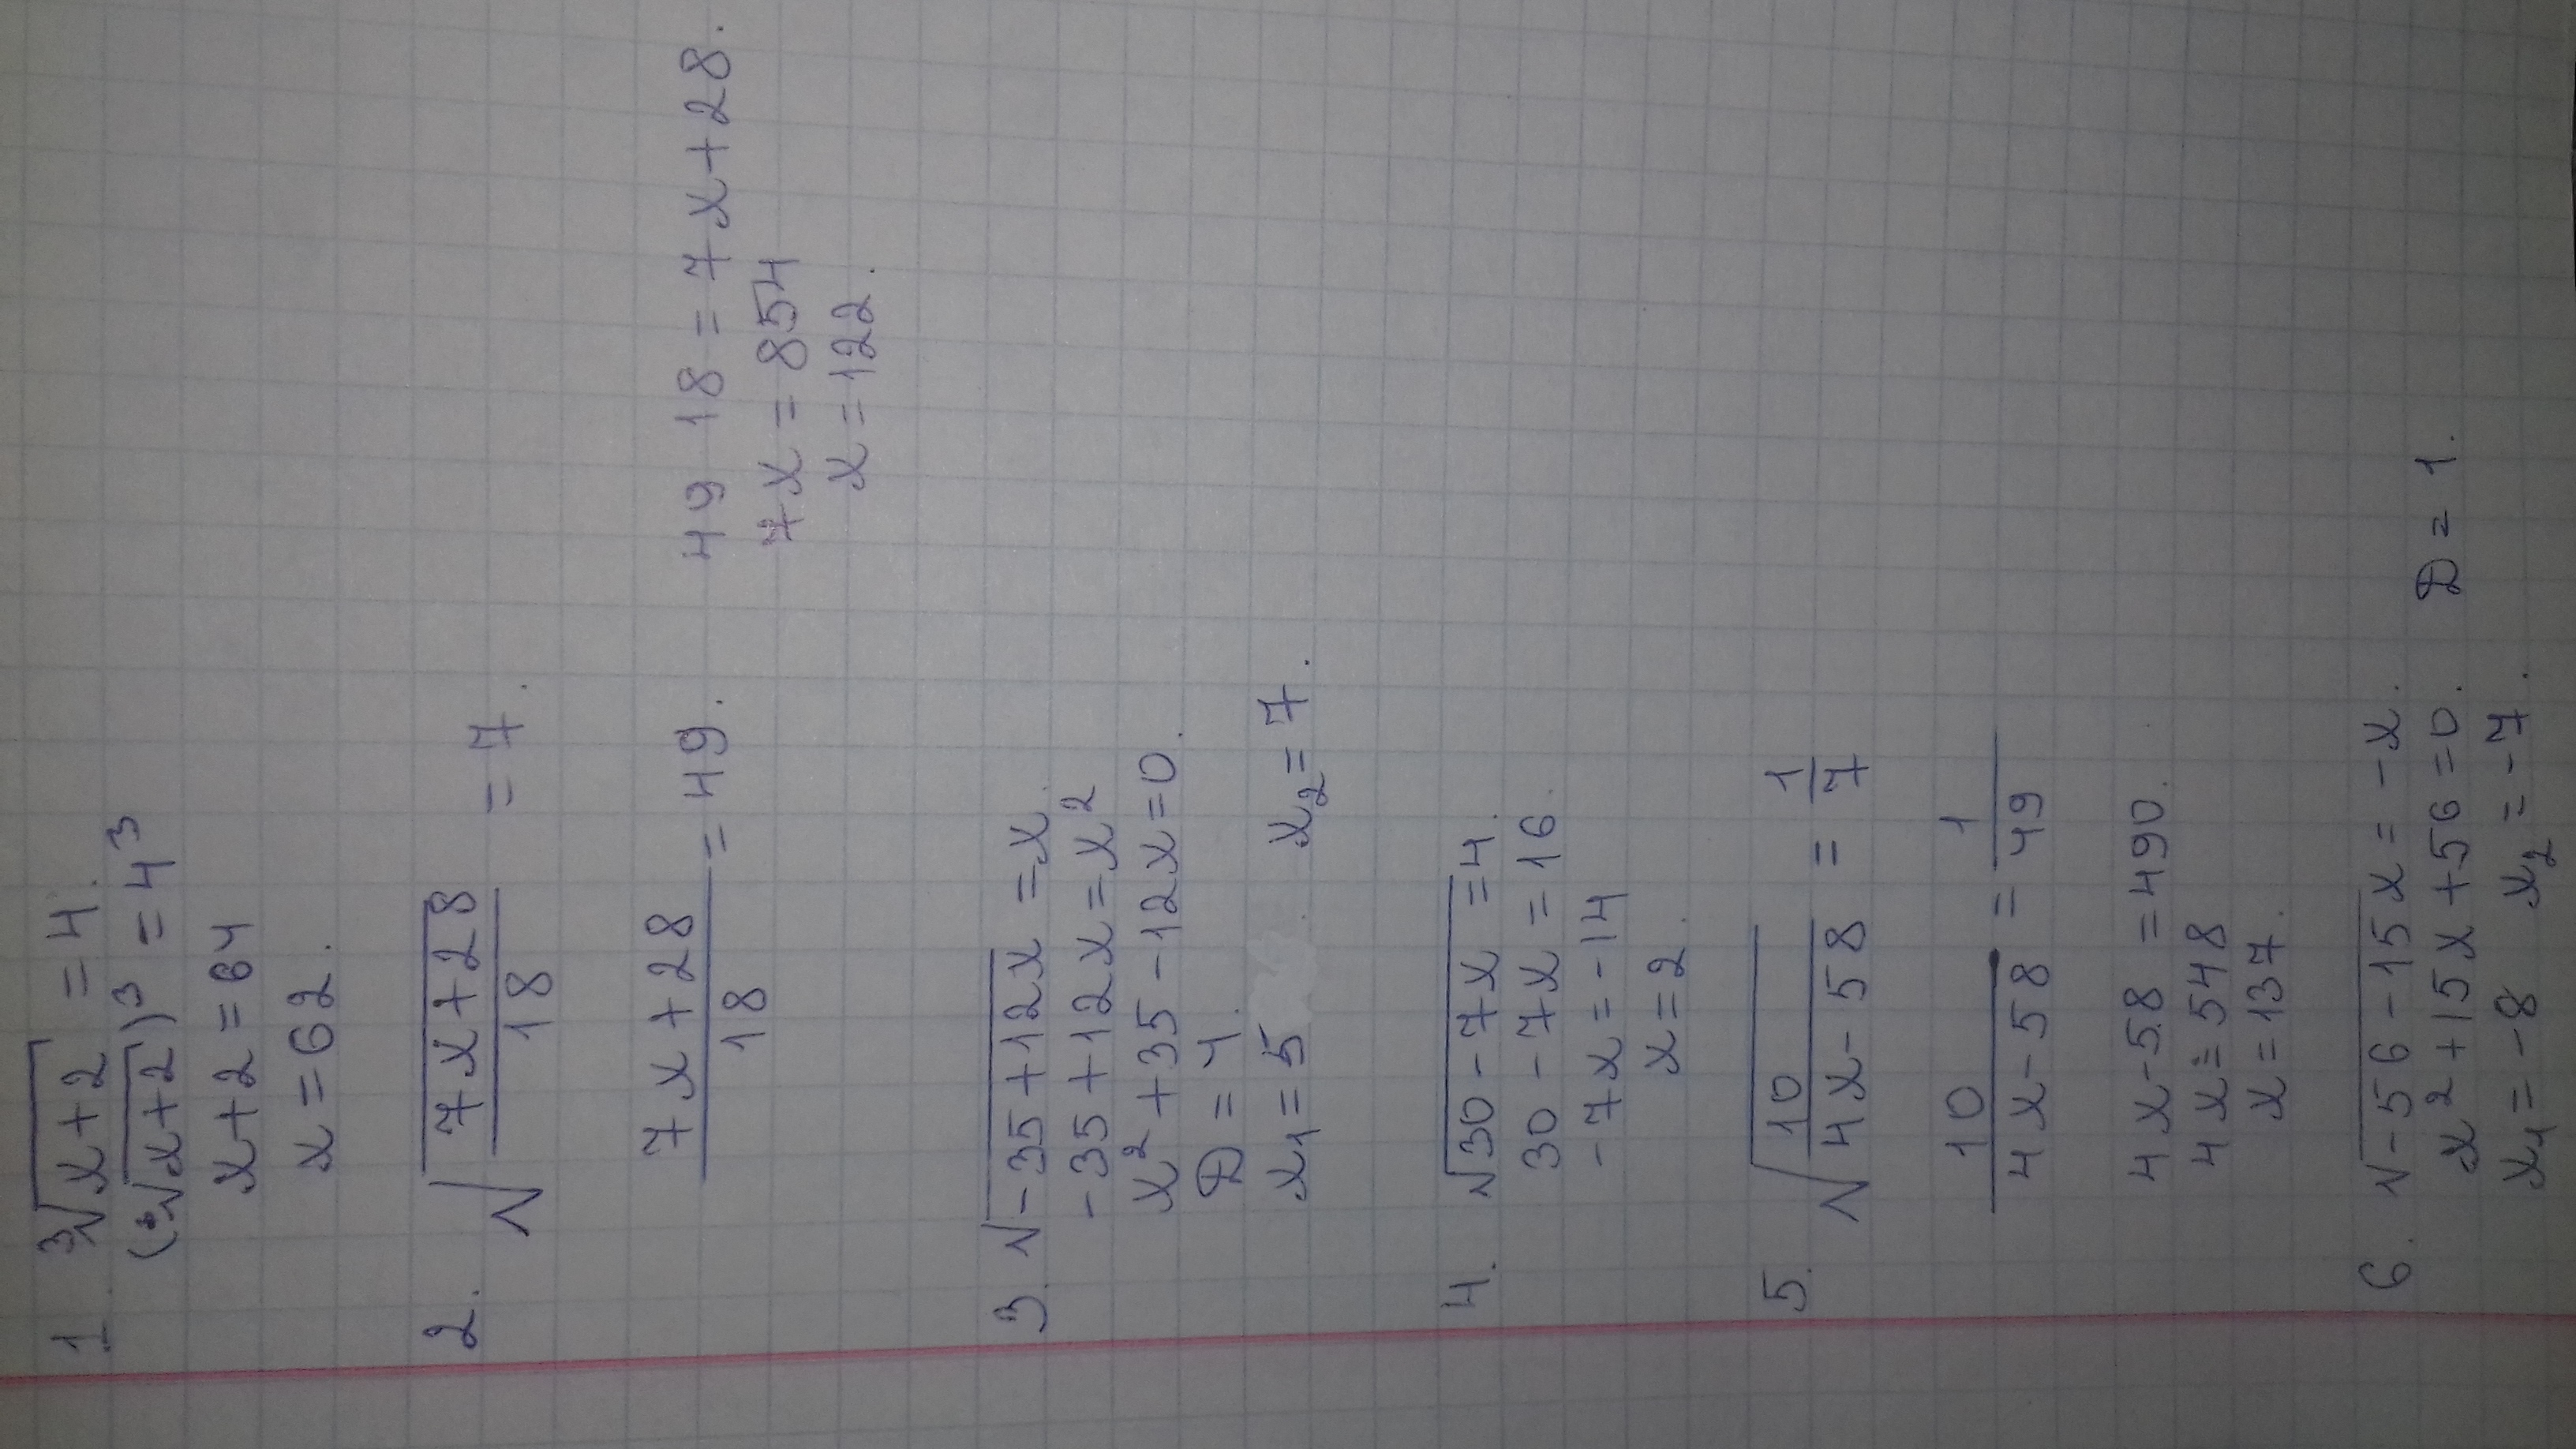 1. ³√(x+2) = 4.
(³√(x+2))³ = 4³
x+2 = 64
x = 62.
2. √((7x+28)/18) = 7.
(7x+28)/18 = 49.
49 18 = 7x+28.
7x = 854
x = 122.
3. √(-35+12x) = x.
-35+12x = x²
x²+35-12x=0.
D = 4.
x₁ = 5 x₂ = 7.
4. √(30-7x) = 4.
30-7x = 16.
-7x = -14
x = 2.
5. √(10/(4x-58)) = 1/7
10/(4x-58) = 1/49
4x-58 = 490.
4x = 548
x = 137.
6. √(-56-15x) = -x.
x²+15x+56=0. D = 1.
x₁ = -8 x₂ = -7.